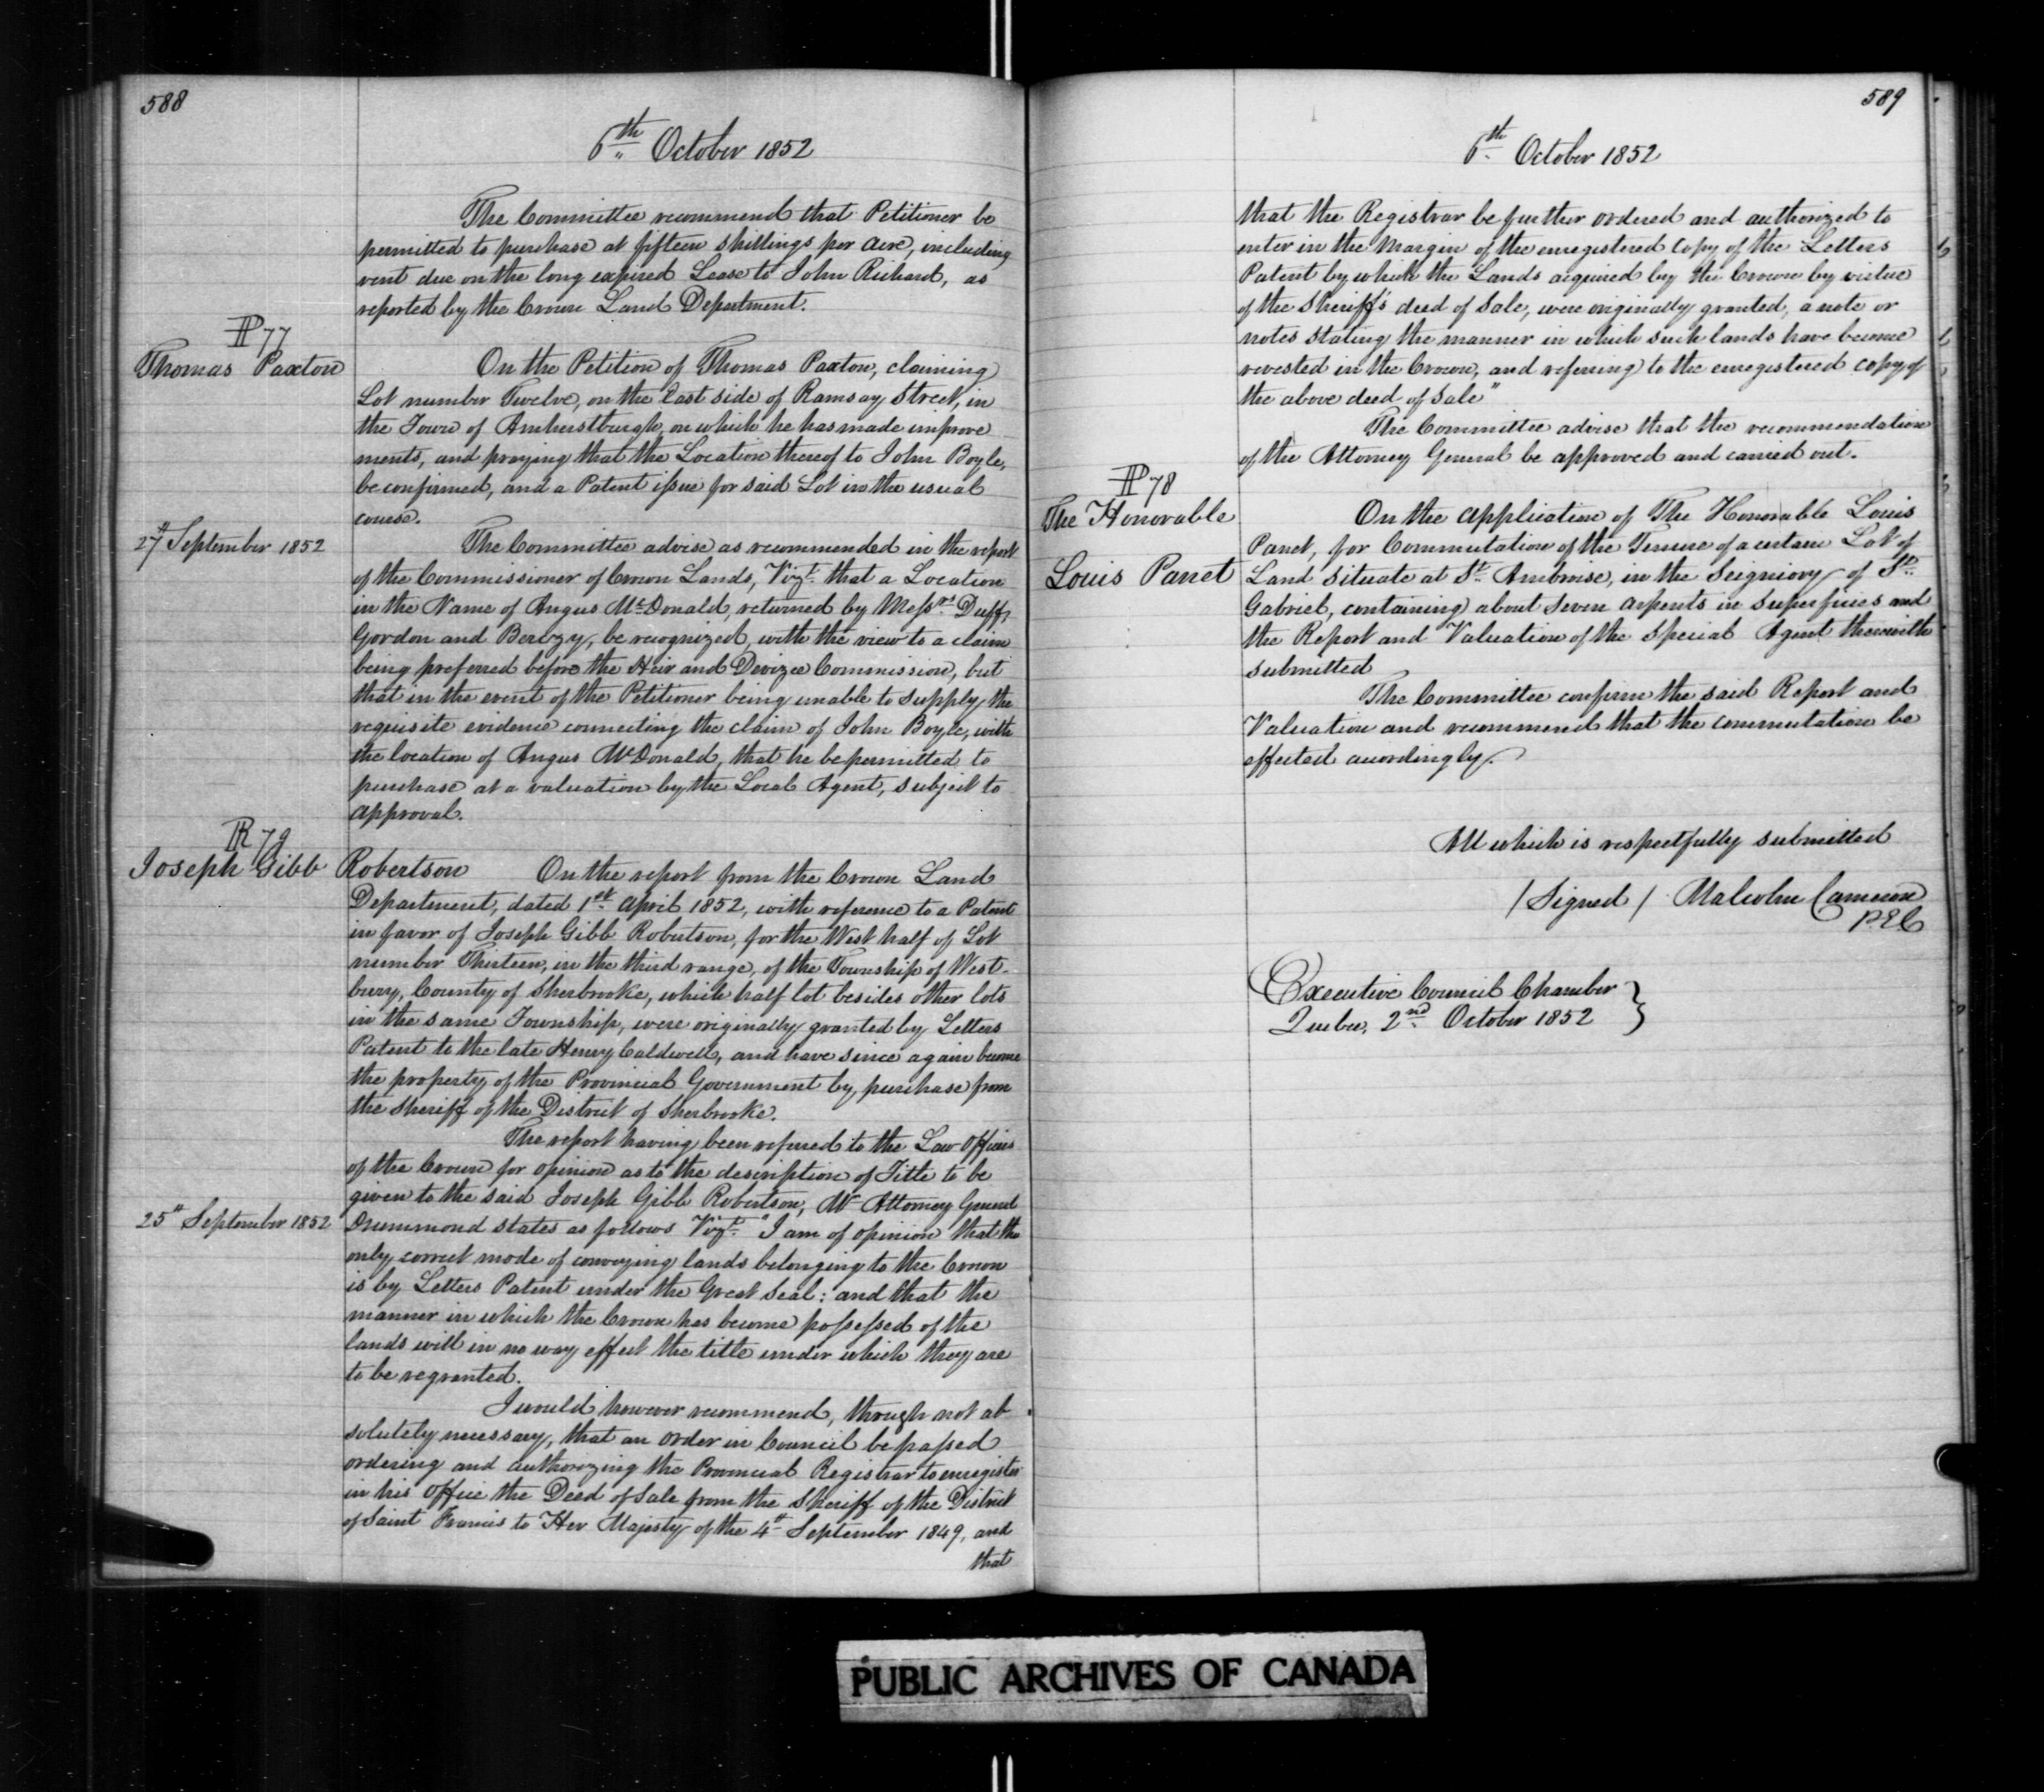 588
6th October 1852
The Committee recommend that Petitioner be
permitted to purchase at fifteen shillings per acre, including
rent due on the long expired Lease to John Richard, as
reported by the Crown Land Department.
P 77
Thomas Paxton
On the Petition of Thomas Paxton, claiming
Lot number Twelve, on the East side of Ramsay Street, in
the Town of Amherstburgh, on which he has made improve
ments, and praying that the Location thereof to John Boyle,
be confirmed, and a Patent issue for said Lot in the usual
course.
27th September 1852
The Committee advise as recommended in the report
of the Commissioner of Crown Lands, Vizt. that a Location
in the Name of Angus McDonald, returned by Messrs. Duff,
Gordon and Berczy, be recognized, with the view to a claim
being preferred before the Heir and Devizee Commission, but
that in the event of the Petitioner being unable to supply the
requisite evidence connecting the claim of John Boyle, with
the location of Angus McDonald, that he be permitted to
purchase at a valuation by the Local Agent, subject to
approval.
R 79
Joseph Gibb Robertson
On the report from the Crown Land
Department, dated 1st April 1852, with reference to a Patent
in favor of Joseph Gibb Robertson, for the West half of Lot
number Thirteen, in the third range, of the Township of West-
bury, County of Sherbrooke, which half lot besides other lots
in the same Township, were originally granted by Letters
Patent to the late Henry Caldwell, and have since again become
the property of the Provincial Government by purchase from
the Sheriff of the District of Sherbrooke.
The report having been referred to the Law Officers
of the Crown for opinion as to the description of Title to be
given to the said Joseph Gibb Robertson, Mr Attorney General
25th September 1852
Drummond states as follows Vizt. "I am of opinion that the
only correct mode of conveying lands belonging to the Crown
is by Letters Patent under the Great Seal: and that the
manner in which the Crown has become possessed of the
lands will in no way effect the title under which they are
to be regranted.
I would however recommend, through not ab
solutely necessary, that an order in Council be passed
ordering and authorizing the Provincial Registrar to enregister
in his office the Deed of Sale from the Sheriff of the District
of Saint Francis to Her Majesty of the 4th September 1849, and
that
589
6th October 1852
that the Registrar be further ordered and authorized to
enter in the margin of the enregistered copy of the Letters
Patent by which the Lands acquired by the Crown by virtue
of the Sheriff's deed of Sale, were originally granted, a note or
notes stating the manner in which such lands have become
revested in the Crown, and referring to the enregistered copy of
the above deed of Sale"
The Committee advise that the recommendation
of the Attorney General be approved and carried out.
P 78
The Honorable
Louis Panet
On the application of The Honorable Louis
Panet, for Commutation of the Tenure of a certain Lot of
Land situate at St. Ambroise, in the Seigniory of St.
Gabriel, containing about seven arpents in superficies and
the Report and Valuation of the special Agent therewith
submitted
The Committee confirm the said Report and
Valuation and recommend that the commutation be
effected accordingly.
All which is respectfully submitted
/Signed/ Malcolm Cameron
P.E.C
Executive Council Chamber
Quebec, 2nd October 1852
PUBLIC ARCHIVES OF CANADA